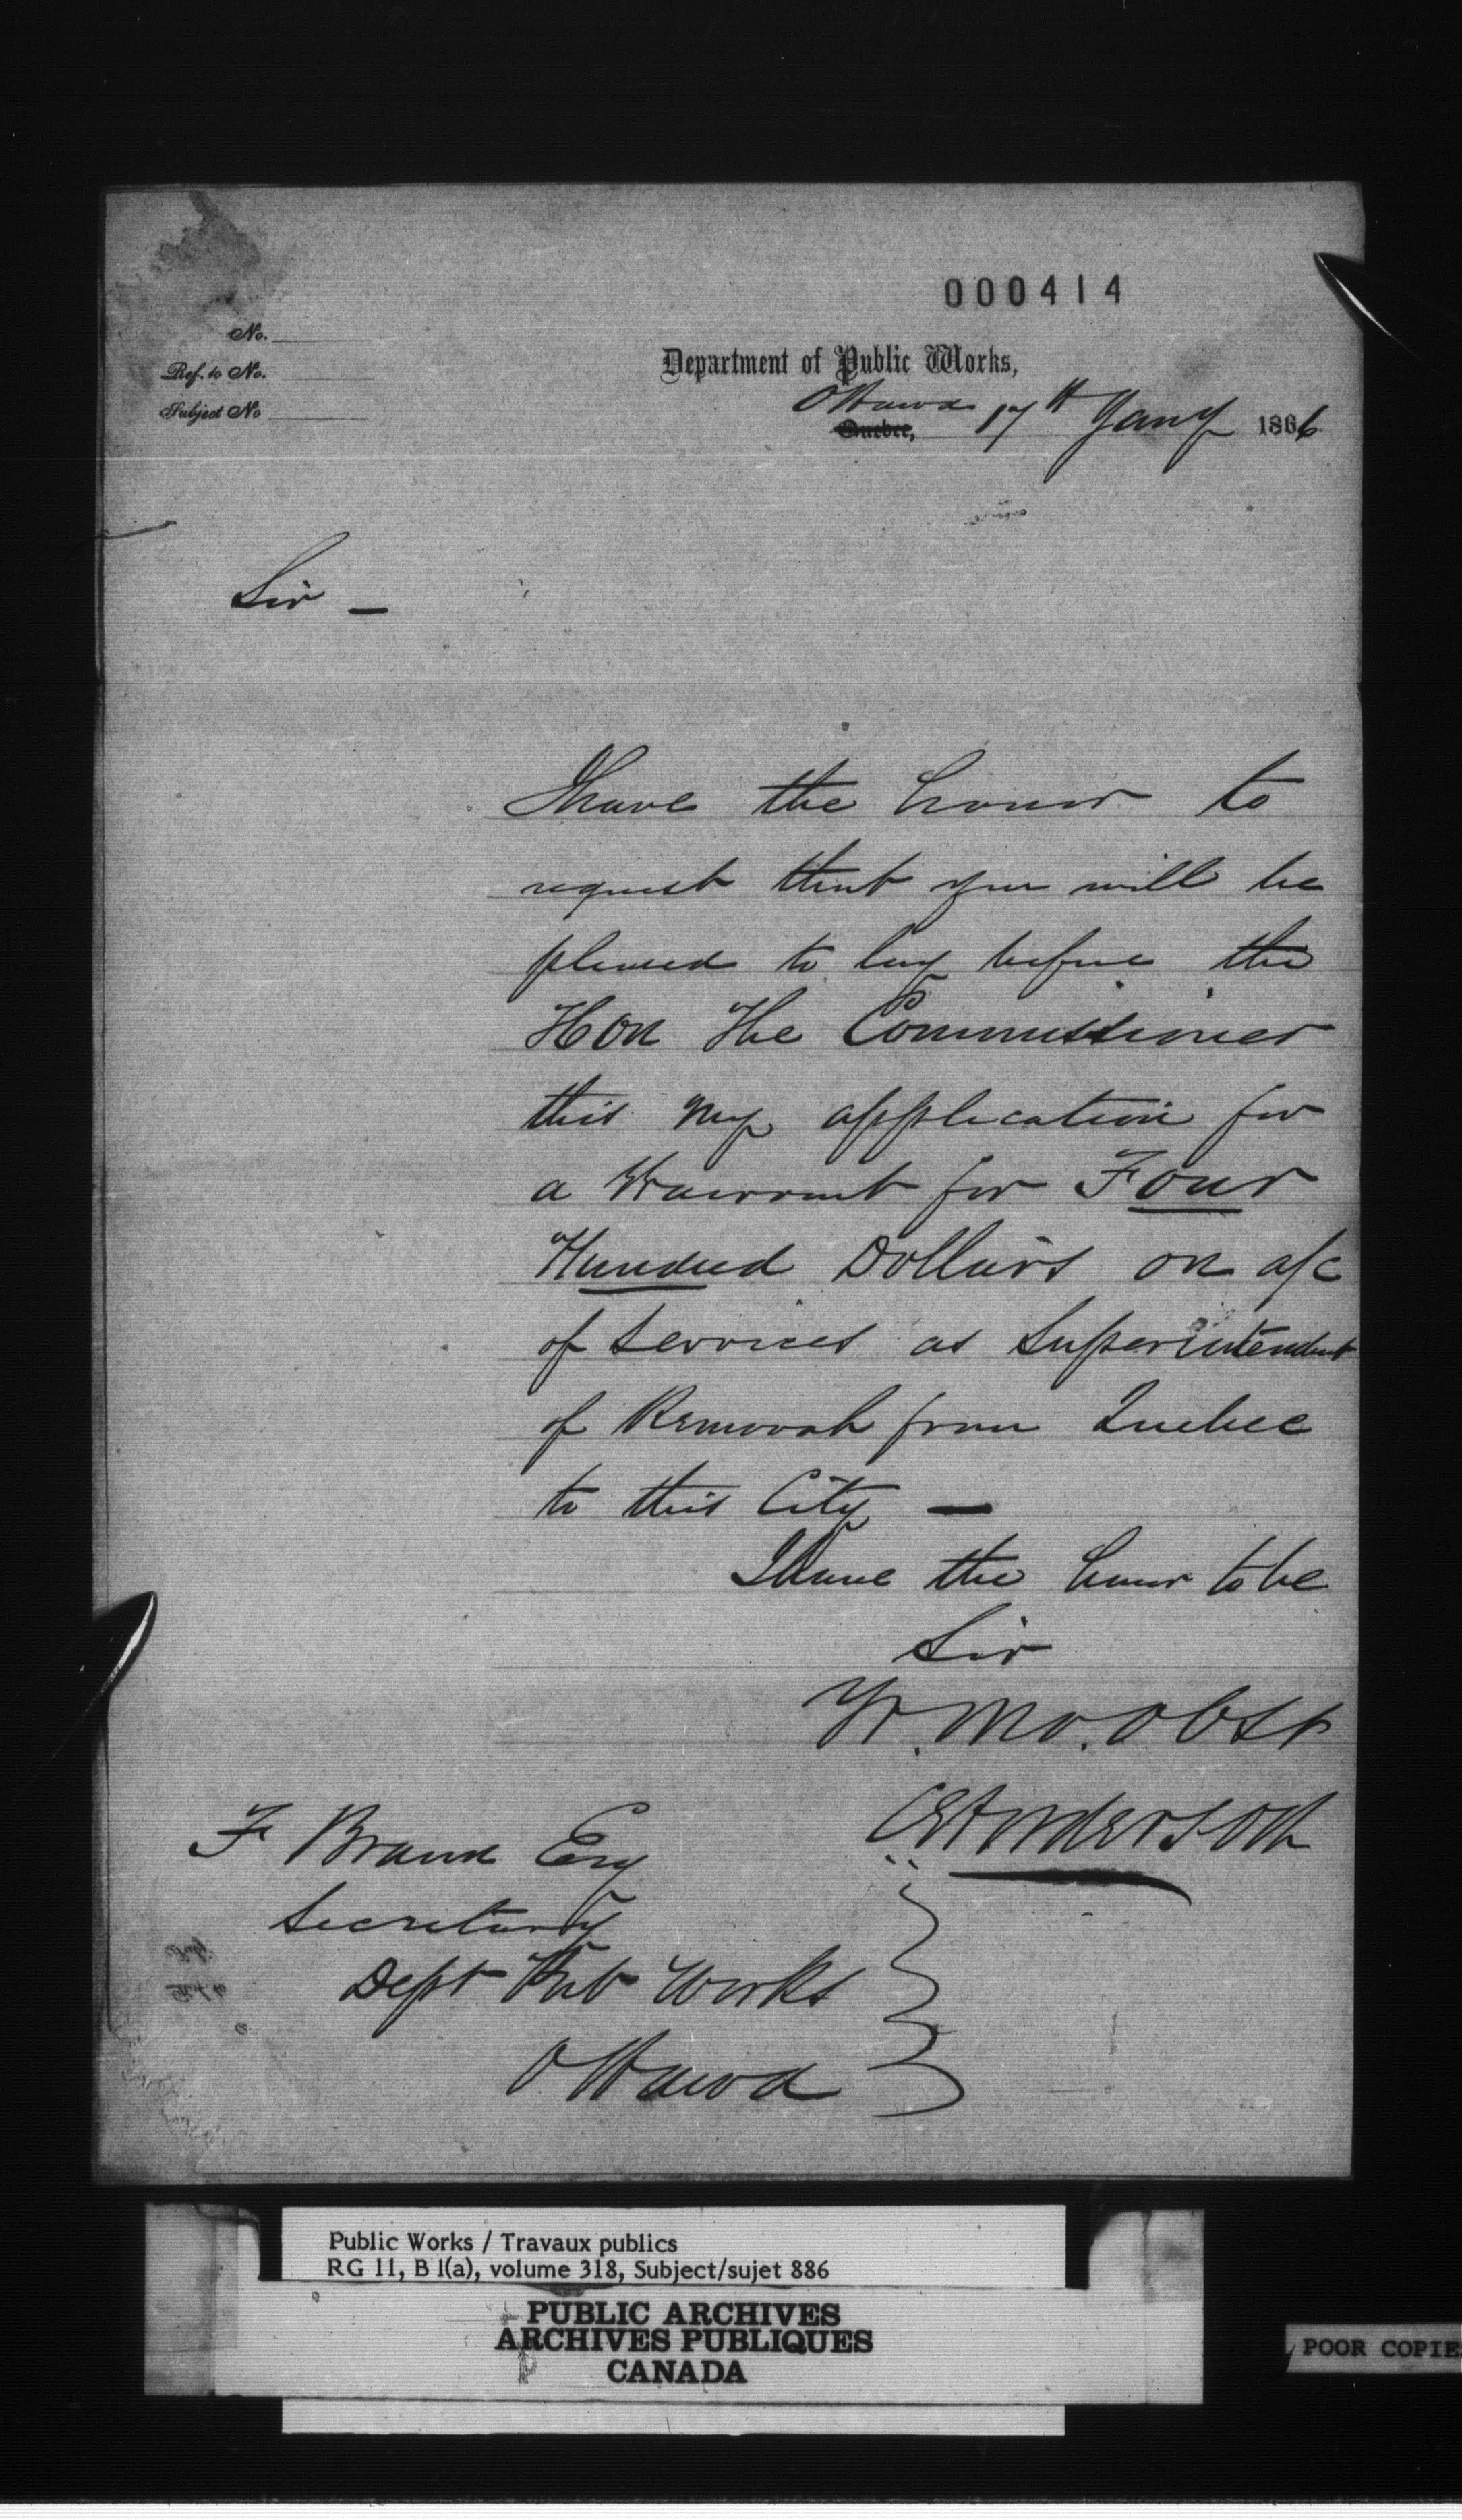 000414
No.
Ref. to No.
Subject No
Department of Public Works,
Ottawa
Quebec, 17th Jany 1866
Sir —
I have the honor to
request that you will be
pleased to lay before the
Hon The Commissioner
this my application for
a Warrant for Four
Hundred Dollars on a/c
of Services as Superintendent
of Removal from Quebec
to this City —
I have the honor to be
Sir
Yr. Mo. Obt
Anderson
F Braun Esq
Secretary
Dept Pub Works
Ottawa
Public Works / Travaux publics
RG 11, B 1(a), volume 318, Subject/sujet 886
PUBLIC ARCHIVES
ARCHIVES PUBLIQUES
CANADA
POOR COPIE